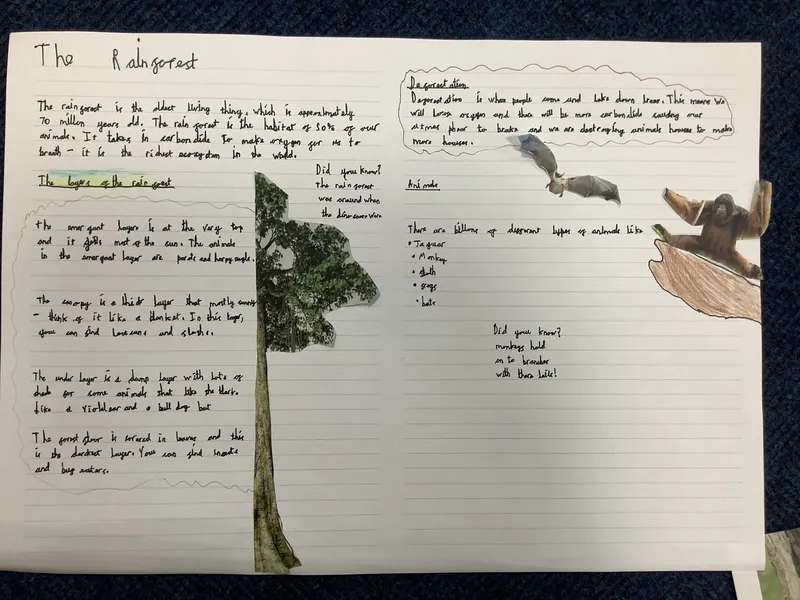 The Rainforest
The rainforest is the oldest living thing, which is approximately
70 million years old. The rain forest is the habitat of 50% of our
animals. It takes in carbondide to make oxygen for us to
breath - it is the richest ecosystem in the world.
Did you know?
The rainforest
was around when
the dinosaurs were
The layers of the rain forest
the emergant layer is at the very top
and it gets most of the sun. The animals
in the emergant layer are parots and harpy eagle.
The canopy is a thick layer that mostly
- think of it like a blanket. In this layer,
you can find toucans and sloths.
The under layer is a damp layer with lots of
shade for some animals that like the dark.
Like a violet ear and a bull dog bat
The forest floor is covered in leaves and this
is the darkest layer. You can find insects
and bug eaters.
Deforestation
Deforestation is when people come and take down trees. This means We
will loose oxygen and thus will be more carbondide causing our
and we are destroying animals houses to make
more houses.
Animals
There are billons of different types of animals like
• Jaguar
• Monkey
• sloth
• frogs
• bats
Did you know?
monkeys hold
on to branches
with there tails!